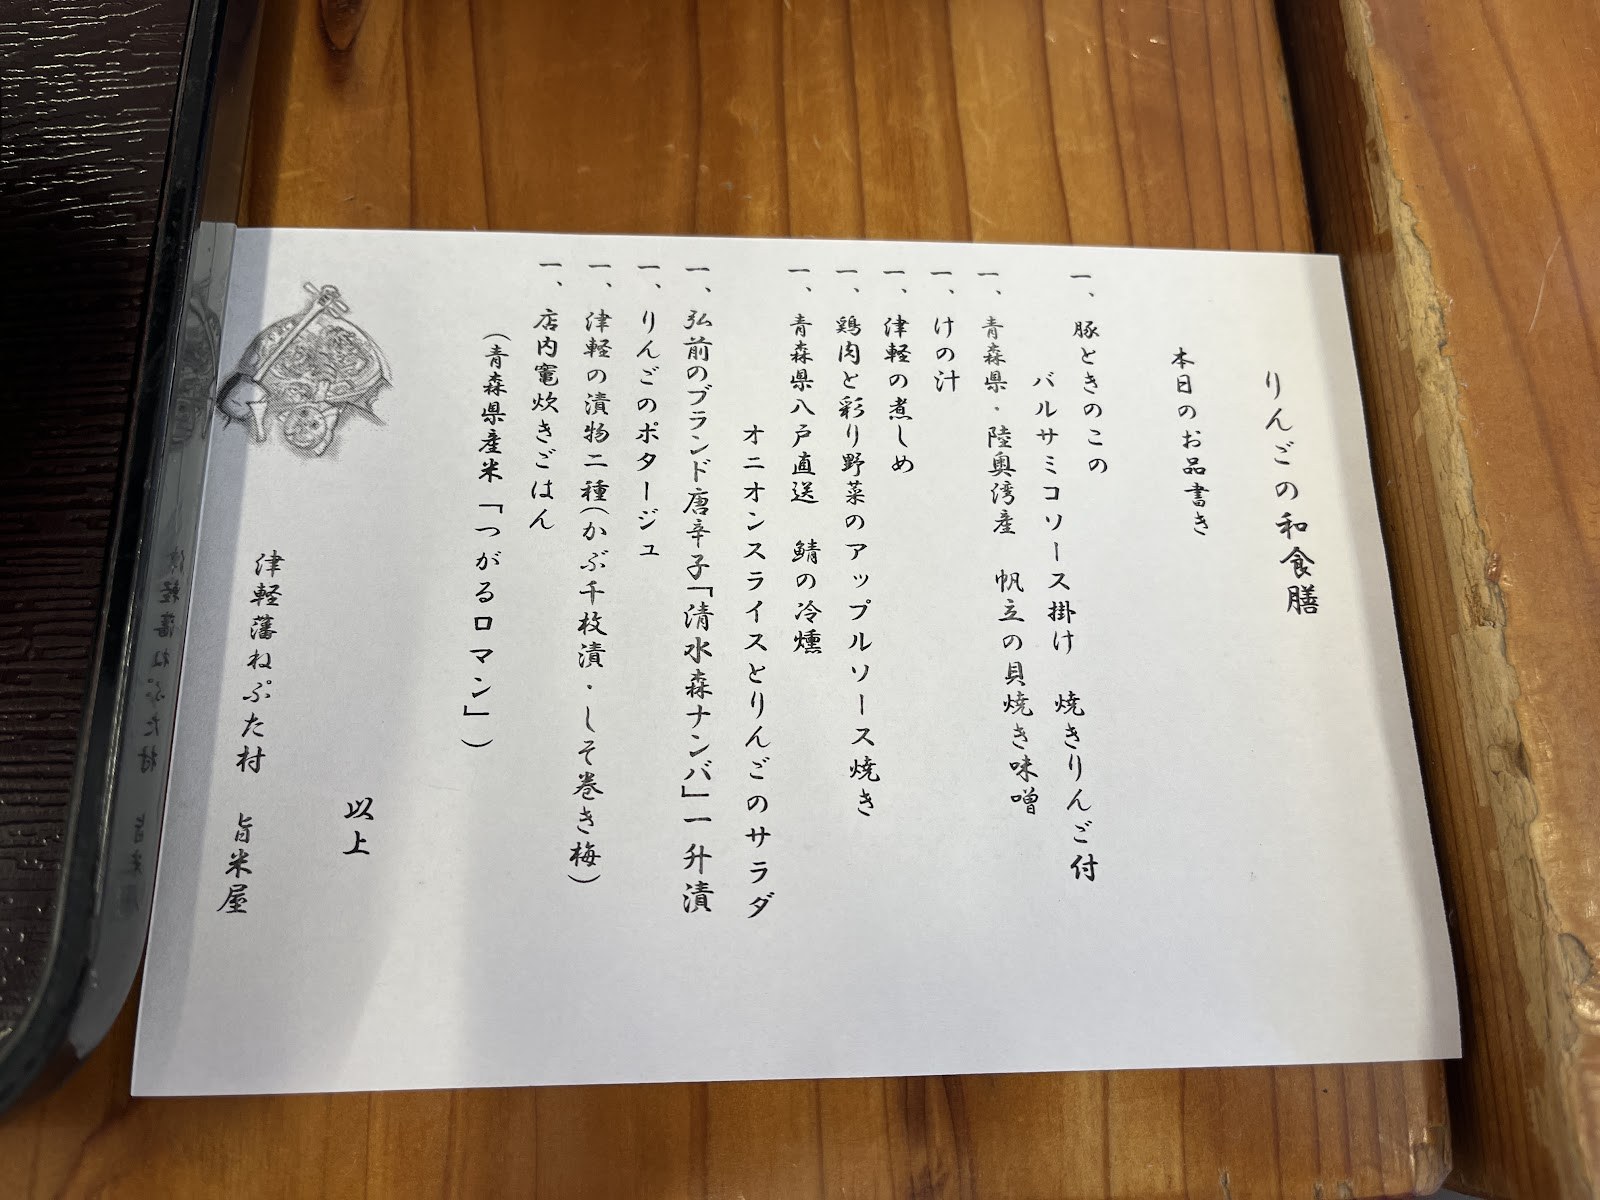 りんごの和食膳
本日のお品書き
一、豚ときのこの
バルサミコソース掛け 焼きりんご付
一、青森県・陸奥湾産 帆立の貝焼き味噌
一、けの汁
一、津軽の煮しめ
一、鶏肉と彩り野菜のアップルソース焼き
一、青森県八戸直送 鯖の冷燻
オニオンスライスとりんごのサラダ
一、弘前のブランド唐辛子「清水森ナンバ」一升漬
一、りんごのポタージュ
一、津軽の漬物二種(かぶ千枚漬・しそ巻き梅)
一、店内竃炊きごはん
(青森県産米「つがるロマン」)
以上
津軽藩ねぷた村 旨米屋